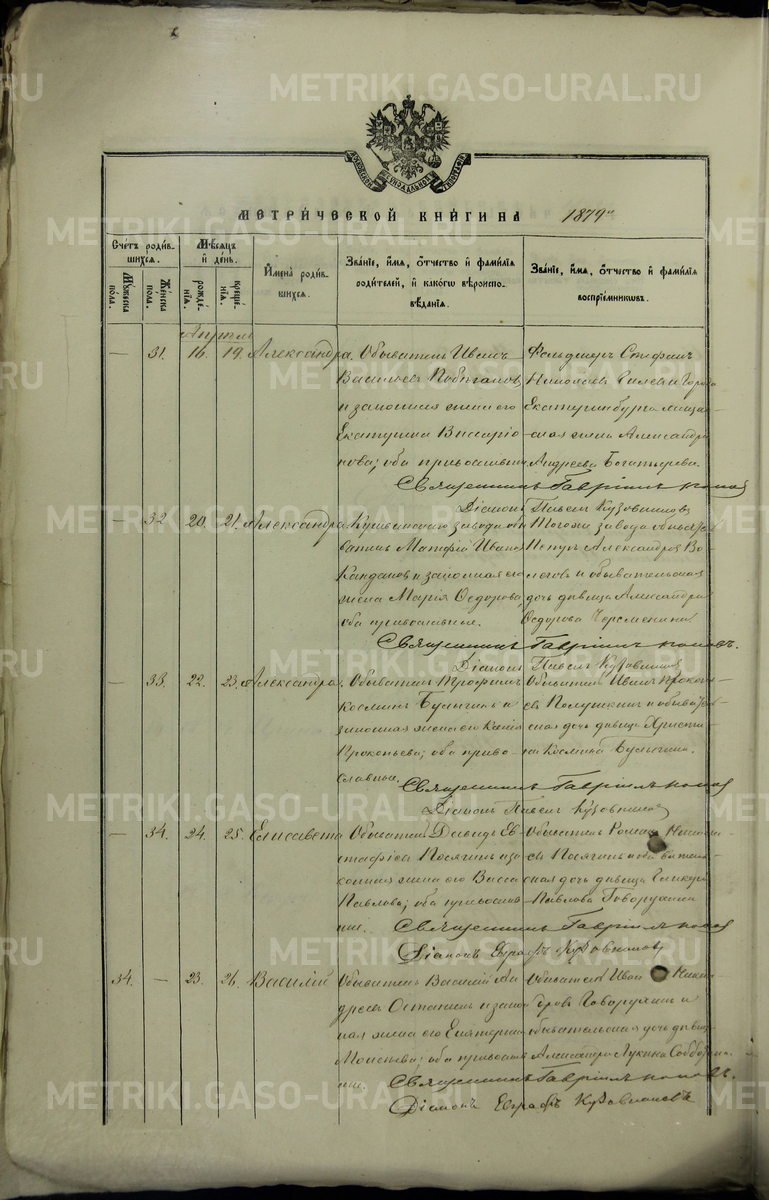 METRIKI.GASO-URAL.RU
МЕТРИ́ЧЕСКОЙ КНИ́ГИ НА 1879 й
Сче́тъ роди́в-
шихся.
Му́жеска по́ла.
Же́нска по́ла.
Мѣ́сяцъ
и де́нь.
рожде́-
нїѧ.
креще́-
нїѧ.
И҆мена̀ роди́в-
шихсѧ.
Зва́нїе, и҆́мѧ, ѻ҆́тчество и҆ фами́лїѧ
роди́телей, и҆ како́гѡ вѣроиспо-
вѣ́данїѧ.
Зва́нїе, и҆́мѧ, ѻ҆́тчество и҆ фами́лїѧ
воспрїе́мникѡвъ.
Апрель
— 31. 16. 19. Александра. Обыватель Иванъ
Васильевъ
и законная жена его
Екатерина Виссарiо-
нова; оба православны
Фельдшеръ Стефанъ
Николаевъ и Города
Екатеринбурга мѣщан-
ская жена Александра
Андреева Богатырева.
Священникъ Гаврiилъ Поповъ
Дiаконъ Павелъ Кузовниковъ
— 32 20. 21. Александра. завода обы-
ватель Матфiй Ивановъ
и законная его
жена Марiя Ѳедорова,
оба православные.
Тогожъ завода
Петръ Александровъ Во-
логовъ и обывательская
дочь дѣвица Александра
Ѳедорова
Священникъ Гаврiилъ Поповъ.
Дiаконъ Павелъ Кузовниковъ
— 33. 22. 23. Александра. Обыватель Трофимъ
Косминъ Булыгинъ и
законная жена его
Прокопьева; оба право-
славные.
Обыватель Иванъ Прокопь-
евъ и обыватель-
ская дочь дѣвица Христи-
на Космина Булыгина.
Священникъ Гаврiилъ Поповъ
Дiаконъ Павелъ Кузовниковъ
— 34. 24. 25. Елисавета Обыватель Давидъ Ев-
стафiевъ Посягинъ и за-
конная жена его Васса
Павлова; оба православ-
ные.
Обыватель Романъ
Посягинъ и обыватель-
ская дочь дѣвица
Павлова Говорухина
Священникъ Гаврiилъ Поповъ
Дiаконъ Евграфъ Кузовниковъ
34. — 23. 26. Василiй Обыватель Василiй Ан-
дреевъ Останинъ и закон-
ная жена его Екатерина
Моисѣева; оба православ-
ные.
Обыватель Иванъ
Говорухинъ и
обывательская дочь дѣвица
Александра Лукина
Священникъ Гаврiилъ Поповъ.
Дiаконъ Евграфъ Кузовниковъ